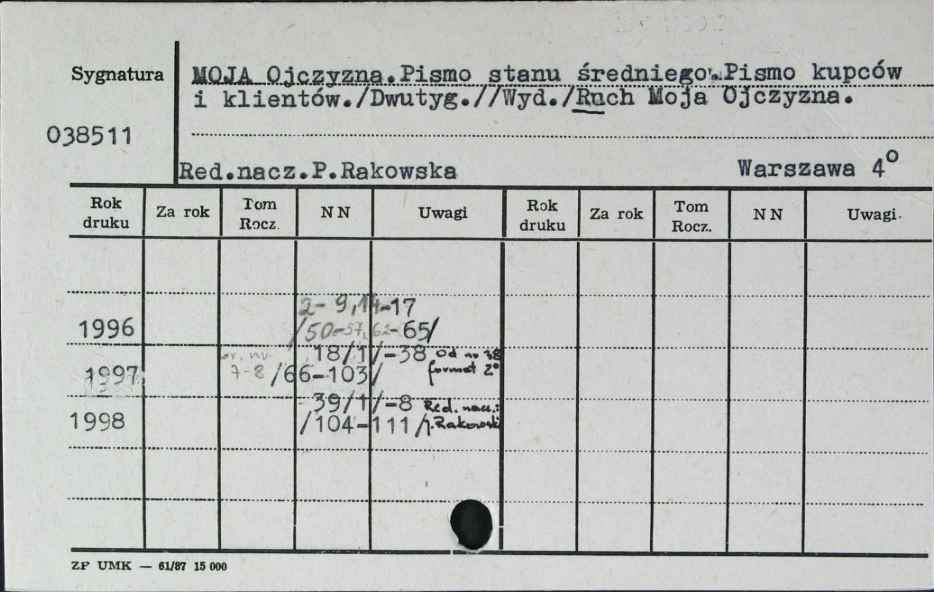 Sygnatura
MOJA Ojczyzna.Pismo stanu średniego.Pismo kupców
i klientów./Dwutyg.//Wyd./Ruch Moja Ojczyzna.
038511
Red.nacz.P.Rakowska Warszawa 4°
Rok druku Za rok Tom Rocz. NN Uwagi Rok druku Za rok Tom Rocz. NN Uwagi
2-9,14-17
1996 /50-57,62-65/
18/1/-38 Od nr 38
1997 7-8 /66-103/ format 2°
39/1/-8 Red. nacz.:
1998 /104-111/ J.Rakowski
ZP UMK — 61/87 15 000